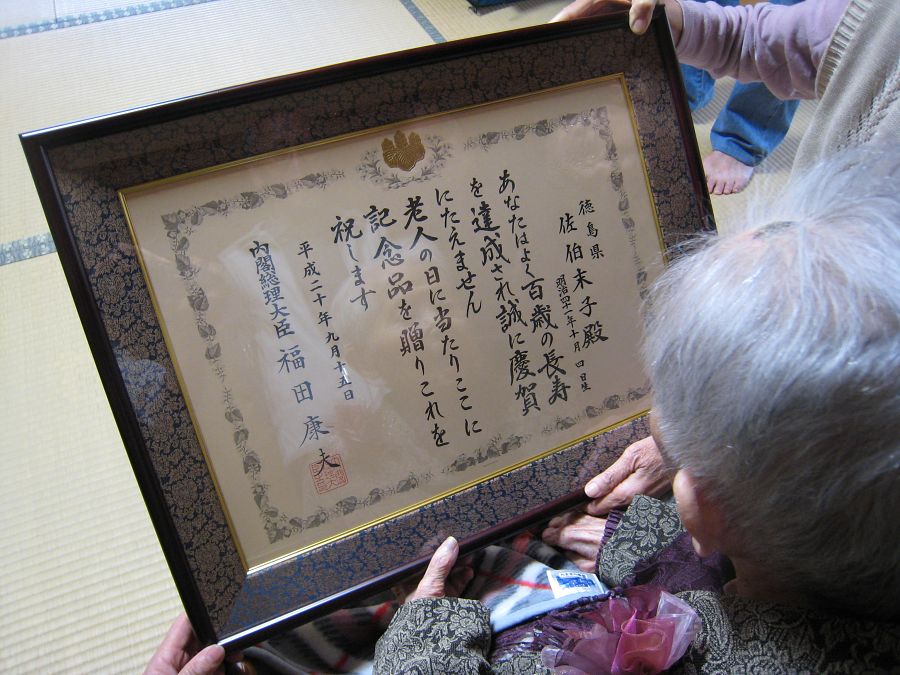 徳島県
佐伯末子殿
明治四十一年十月四日生
あなたはよく百歳の長寿
を達成され誠に慶賀
にたえません
老人の日に当たりここに
記念品を贈りこれを
祝します
平成二十年九月十五日
内閣総理大臣 福田康夫